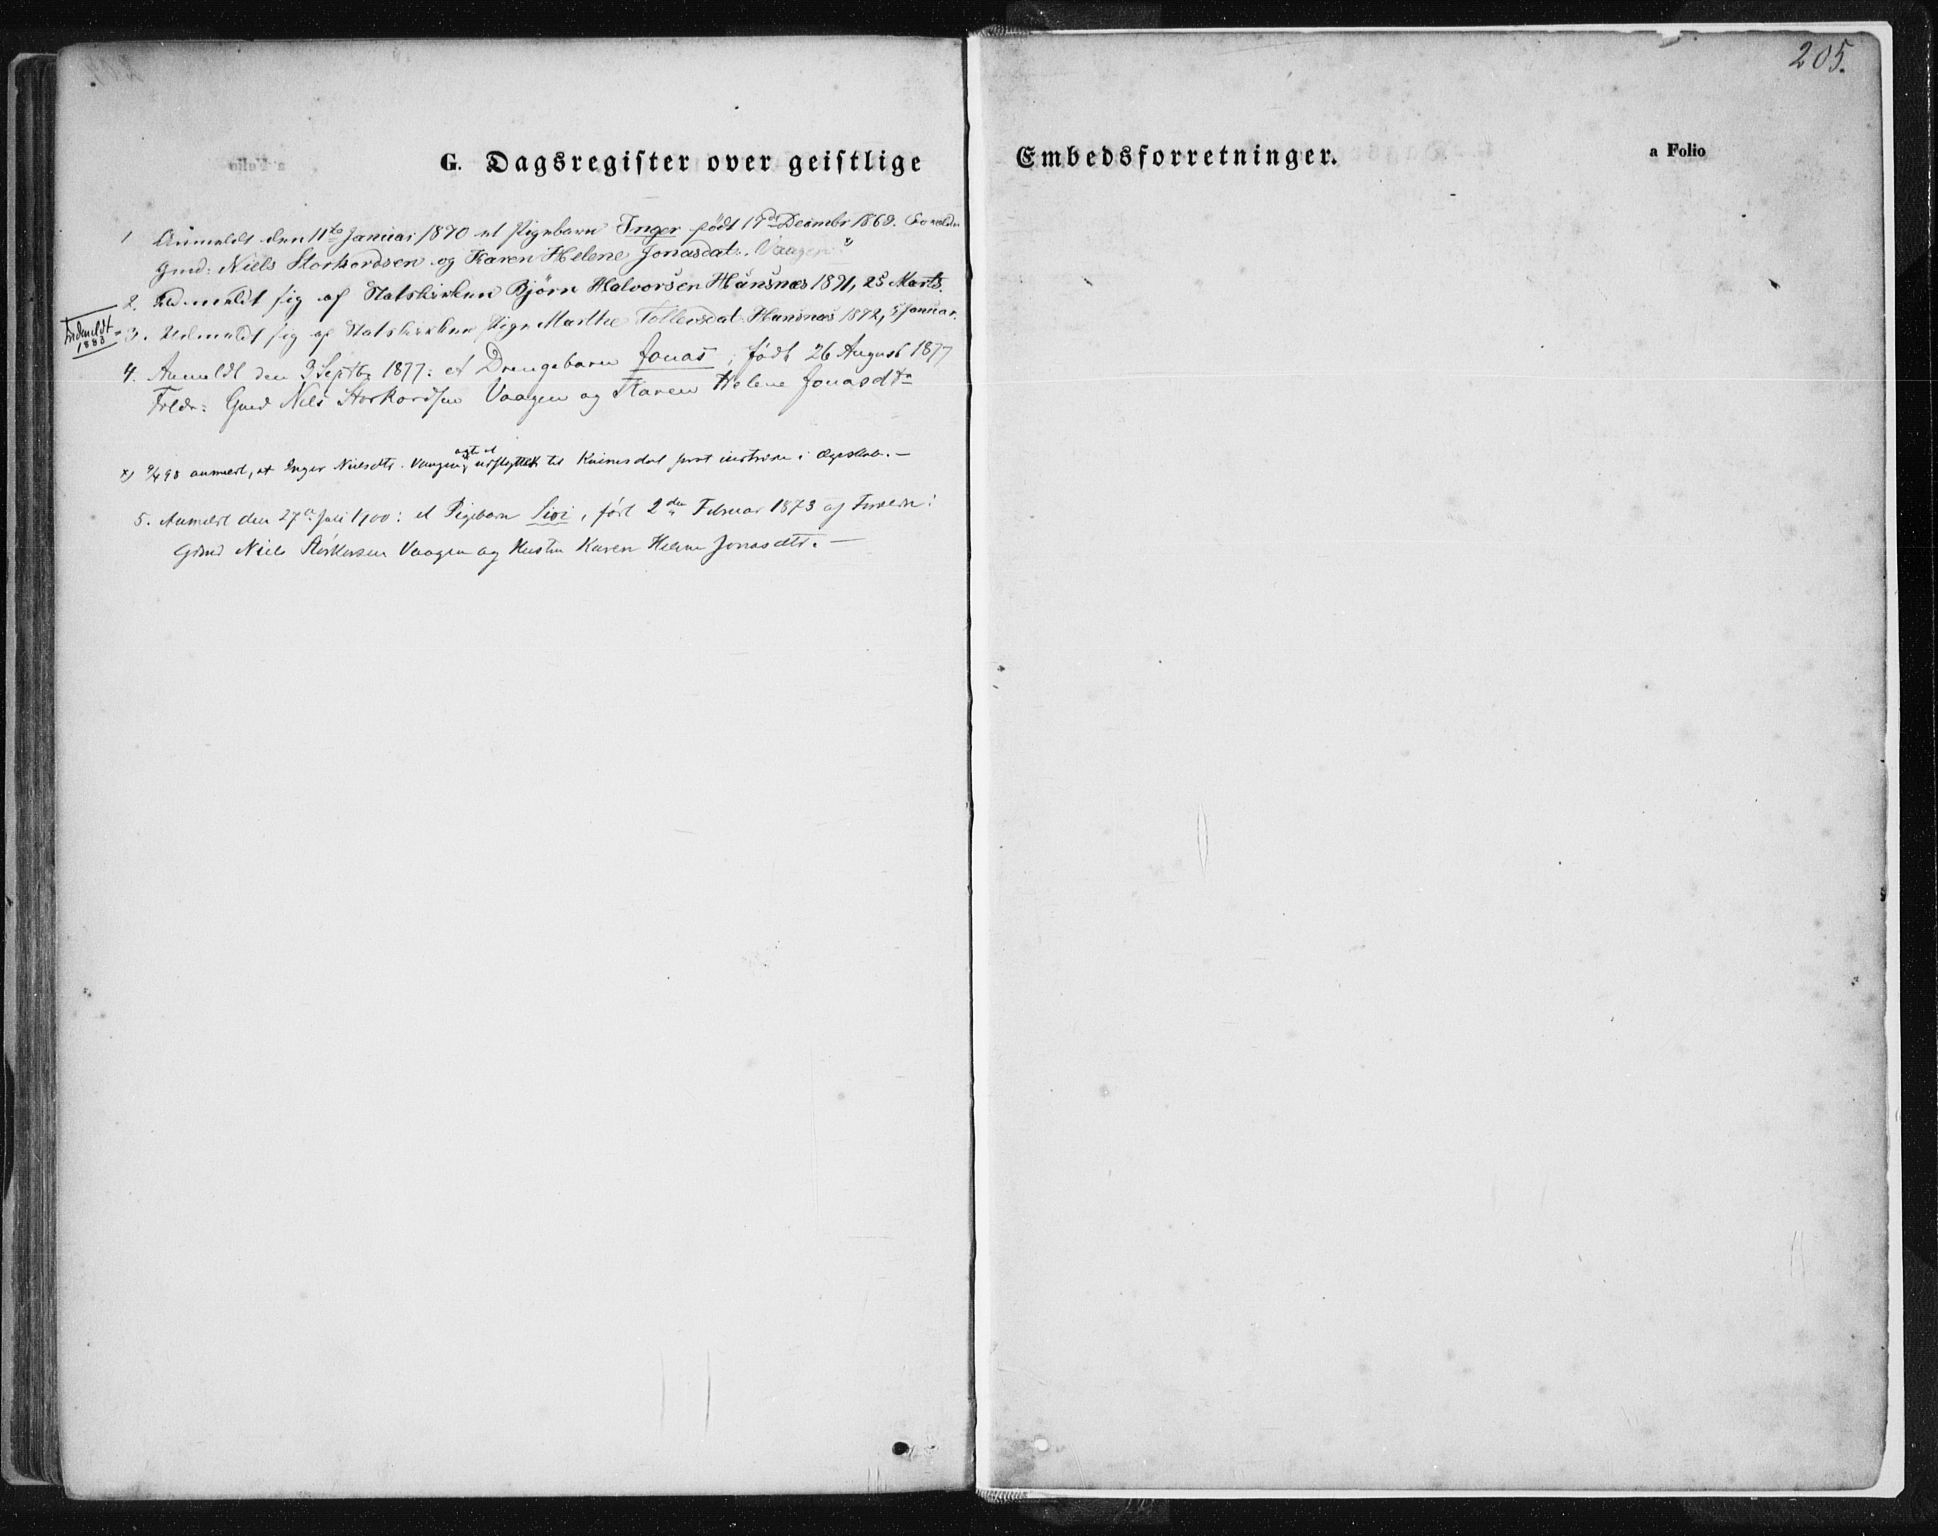 205.
G. Dagsregister over geistlige Embedsforretninger. a Folio
1 Anmeldt den 11te Januar 1870 et Pigebarn Inger født 17de December 1869. Forældre
Gmd: Niels Storkordsen og Karen Helene Jonasdat. Vaagen
2. Udmeldt sig af Statskirken Bjørn Halvorsen Hansnæs 1871, 25 Marts.
Indmeldt
1883
3. Udmeldt sig af Statskirken Pige Marthe Tollersdat Hansnæs 1872, 5 Januar.
4. Anmeldt den 3 Septbr 1877: et Drengebarn Jonas, født 26 August 1877
Frldr: Gmd Nils Storkordsen Vaagen og Karen Helene Jonasdtr
x) 98 anmeldt, at Inger Nielsdtr. Vaagen, agt. at udflyttet til Kvinesdal for at indtræde i Ægteskab. —
5. Anmeldt den 27de Juli 1900: et Pigebarn Sivi, født 2den Februar 1873 af Forældre:
Grmd Niels Størkersen Vaagen og Hustru Karen Helene Jonasdtr. —